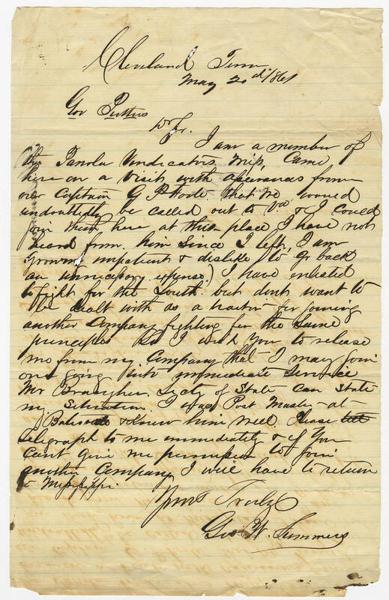 Cleveland Tenn
May 20d 1861
Gov Pettus
Dr Sr. I am a member of
the Panola Vindicators, Miss, Came
here on a visit with assurances from
our Captain G P Foote that we would
undoubtedly be called out to Va & I could
join them here at this place I have not
heard from him since I left, I am
growing impatient & dislike to go back
an unnecessary expense.) I have enlisted
to fight for the South. but don't want to
be dealt with as a traitor for joining
another Company fighting for the same
principles So I wish You to release
me from my Company that I may join
one going into immediate Service
Mr Brougher Secty of State can State
my I was Post Master at
& Know him well Please
telegraph to me immediately & if You
Cant give me permission to join
another Company I will have to return
to Mississippi
Yours Truly
Geo W. Summers